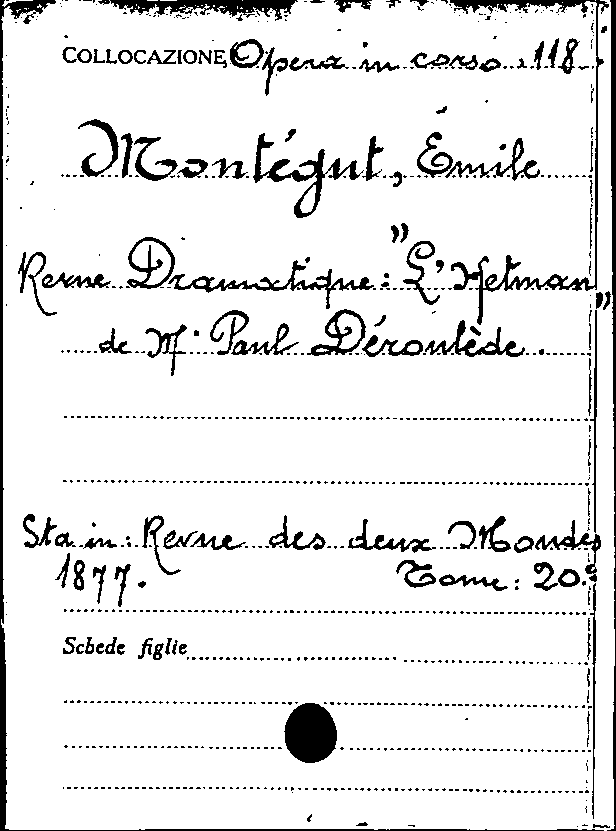 COLLOCAZIONE Opera in corso .118.
Montégut, Émile
Revue Dramatique: "L'Hetman"
de Mr. Paul Déroulède.
Sta in: Revue des deux Mondes
1877. Tome: 20.o
Schede figlie